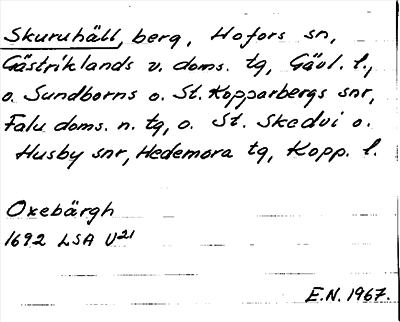 Skuruhäll, berg, Hofors sn,
Gästriklands v. doms. tg, Gävl. l.,
o. Sundborns o. St. Kopparbergs snr,
Falu doms. n. tg, o. St. Skedvi o.
Husby snr, Hedemora tg, Kopp. l.
Oxebärgh
1692 LSA U21
E.N. 1967.